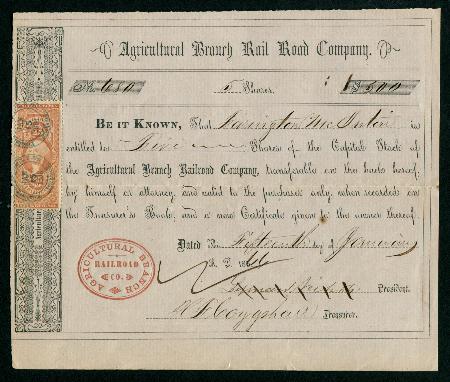 Agricultural Branch Rail Road Company.
No. 680 5 Shares. $500
BE IT KNOWN, That Farrington McIntire is
entitled to Five Shares of the Capital Stock of
the Agricultural Branch Railroad Company, transferable on the back hereof,
by himself or attorney, and valid to the purchaser only, when recorded on
the Treasurer's Books, and a new Certificate given to the owner thereof.
Dated this day of January
A. D. 186
President.
Treasurer.
AGRICULTURAL BRANCH
RAILROAD
CO.
Agricultural